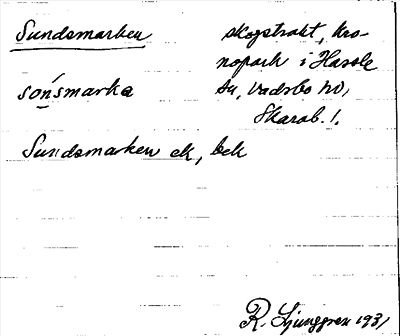 Sundsmarken
skogstrakt, kro-
nopark i Hassle
sn, Vadsbo hd,
Skarab. l.
sónsmarka
Sundsmarken ek, bek
R. Ljunggren 1931